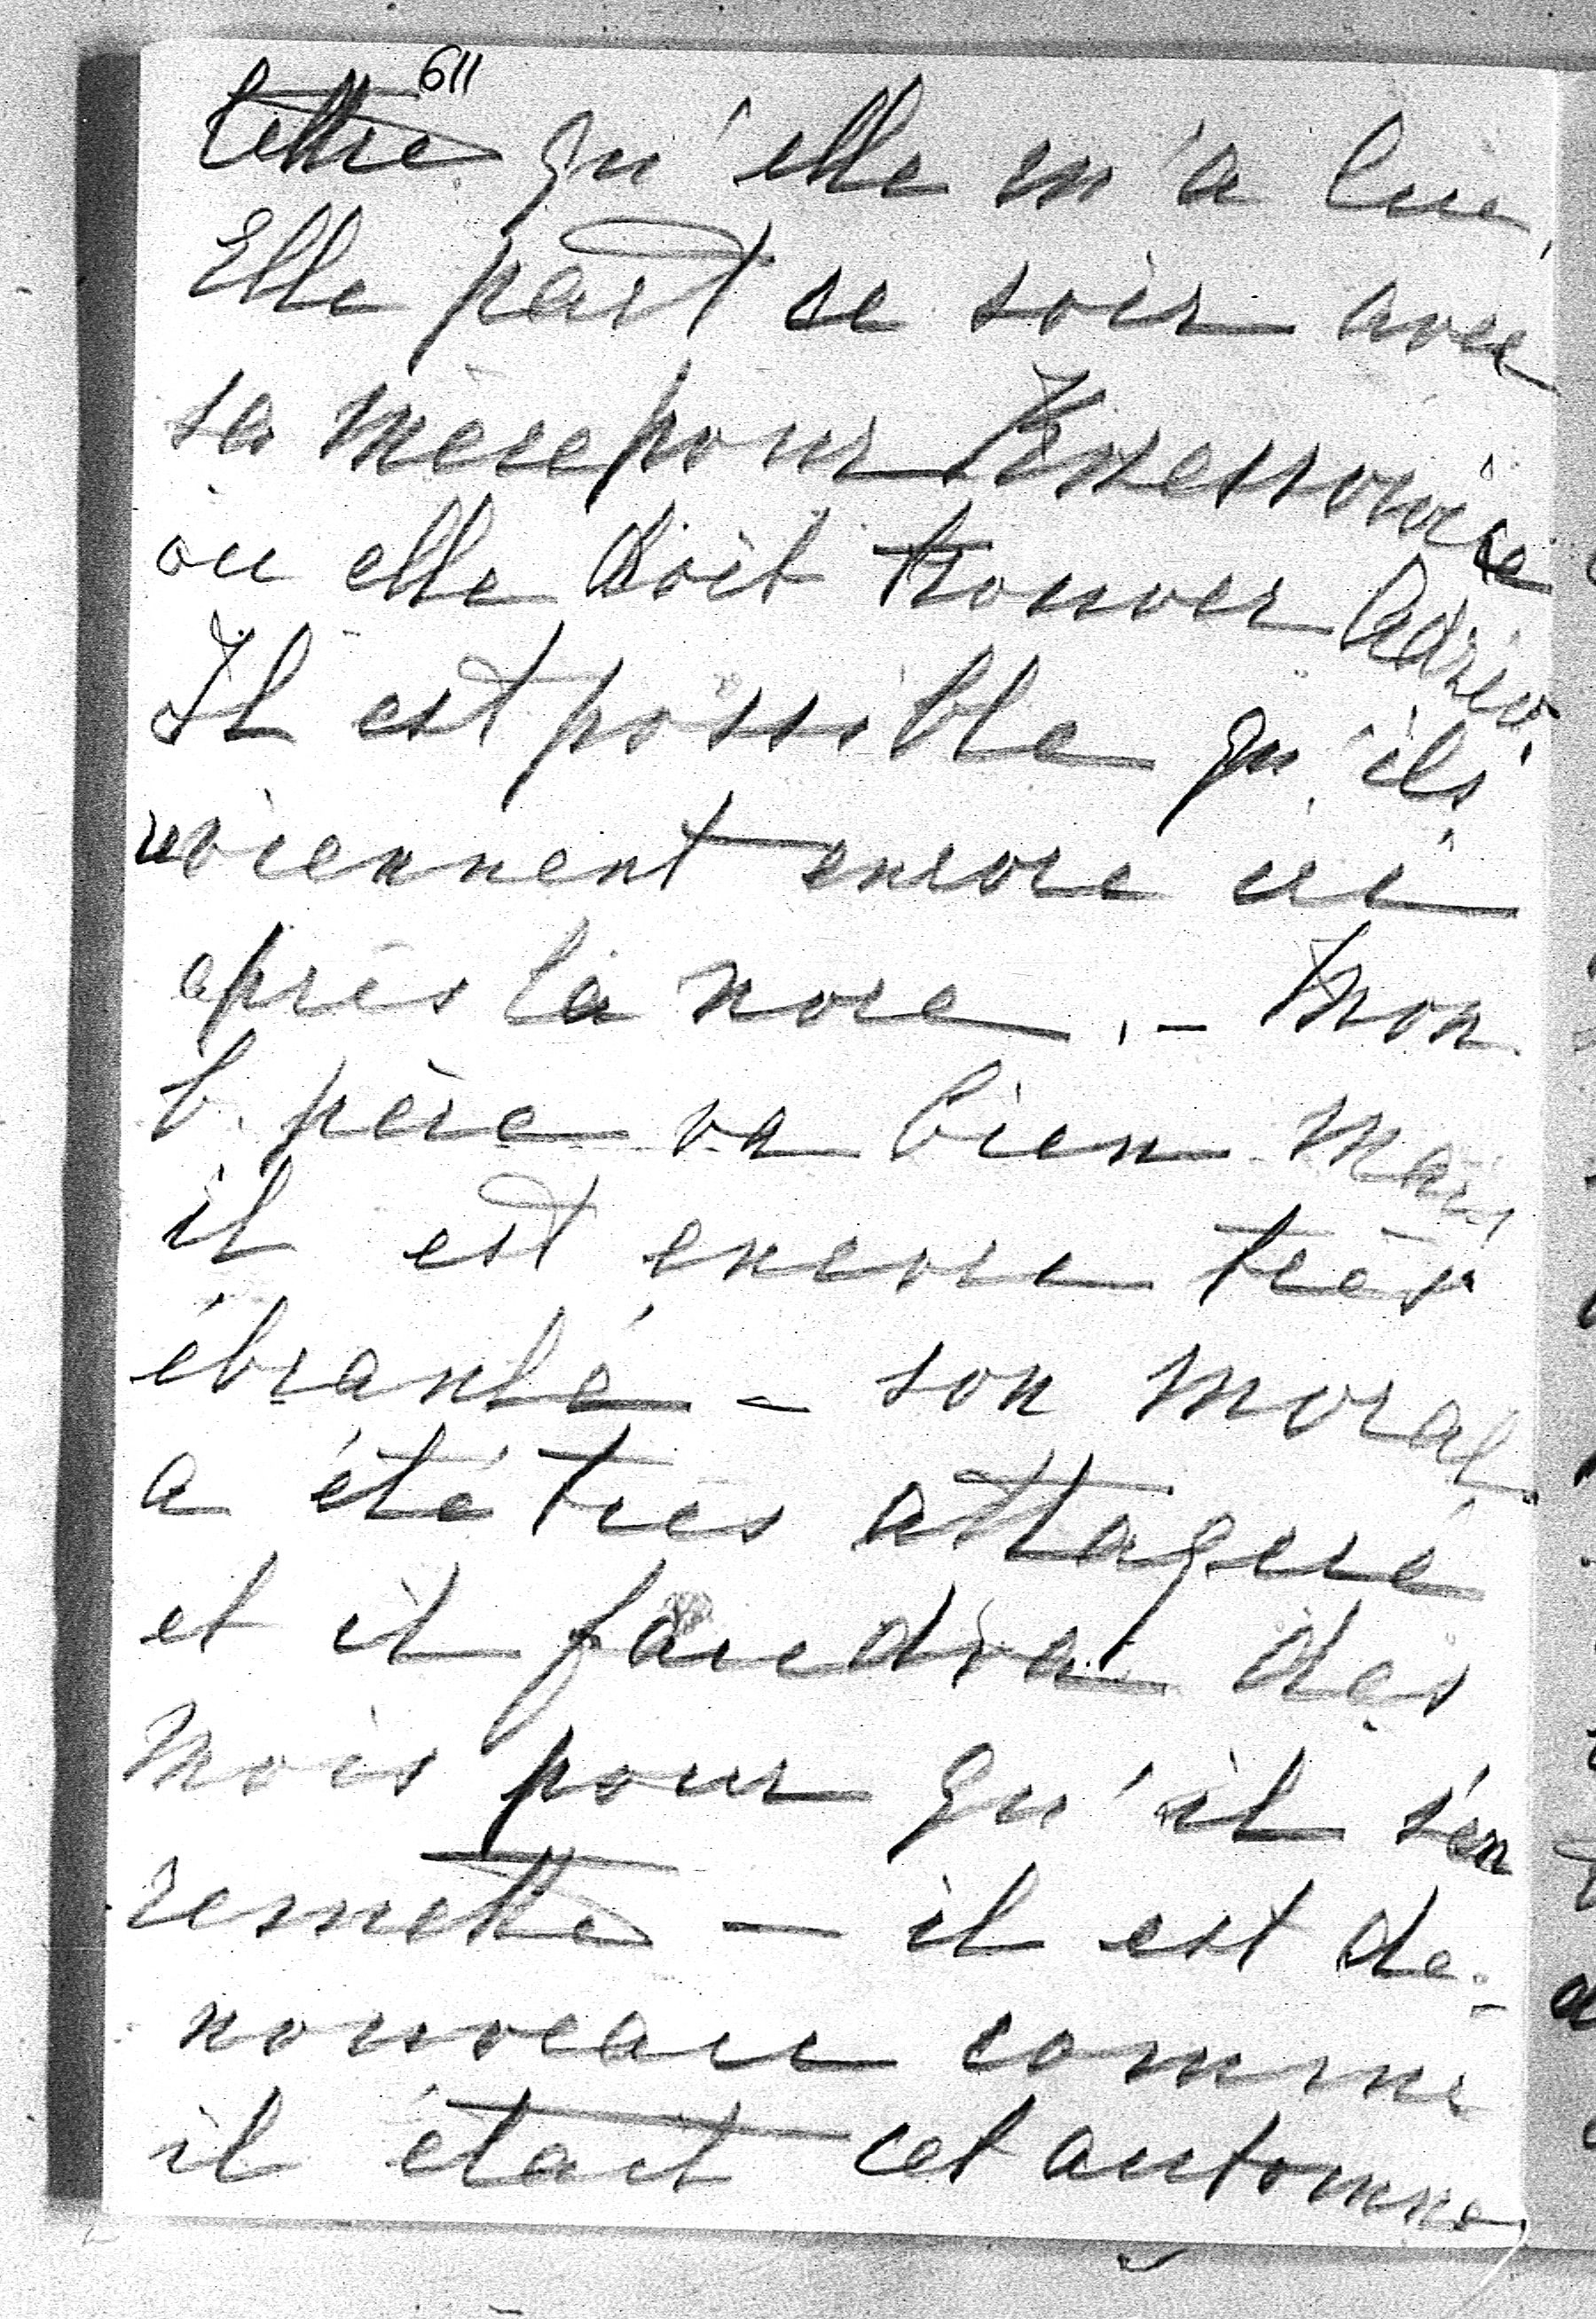 611
lettre qu'elle m'a lue,
Elle part ce soir avec
sa mère pour Krzessowice
où elle doit trouver Adzio.
Il est possible qu'ils
reviennent encore ici
après la noce. - Mon
b. père va bien mais
il est encore très
ébranlé - son moral
a été très attaqué
et il faudra des
mois pour qu'il s'en
remette — il est de-
nouveau comme
il était cet automne,